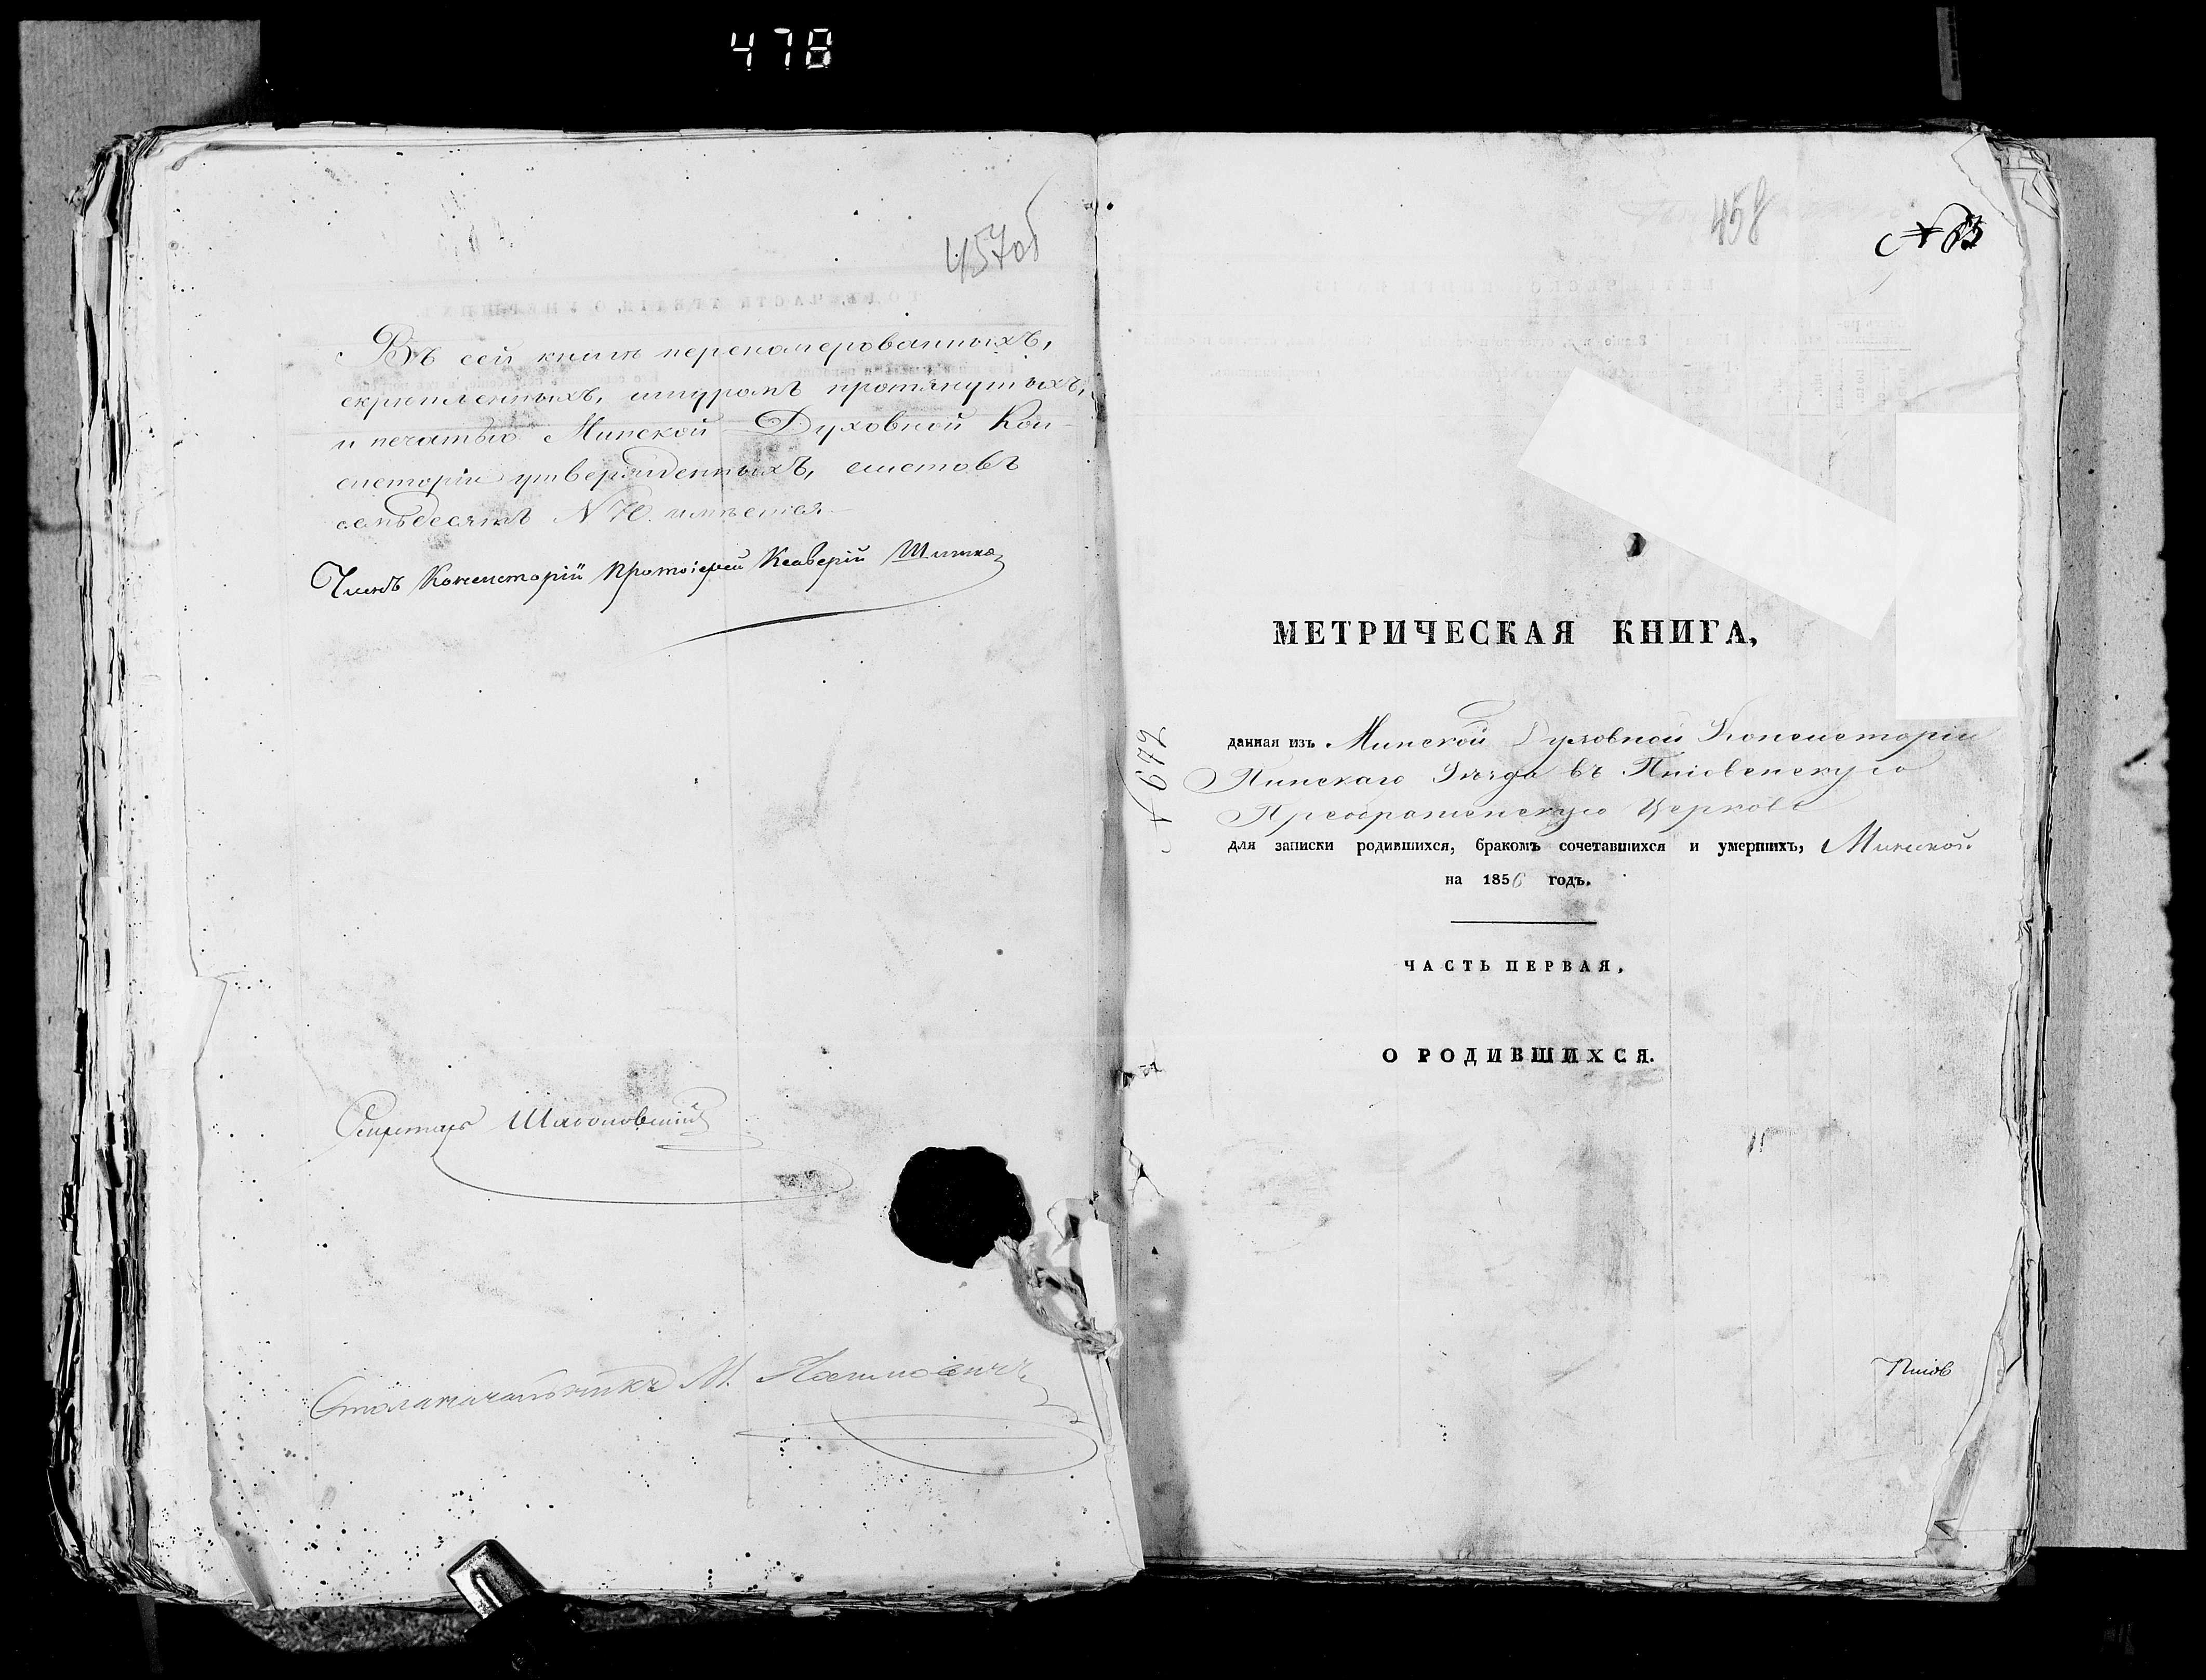 478
457об
Въ сей книгѣ переномерованныхъ,
скрѣпленныхъ, шнуромъ протянутыхъ,
и печатью Минской Духовной Кон-
систоріи утвержденныхъ, листовъ
семьдесятъ N 70. имѣется
Членъ Консисторіи Протоіерей Ксаверій
Секретарь
Столоначальникъ М.
458
МЕТРИЧЕСКАЯ КНИГА,
данная изъ Минской Духовной Консисторіи
Пинскаго Уѣзда въ
Преображенскую Церковь
для записки родившихся, бракомъ сочетавшихся и умершихъ,
на 1856 годъ.
ЧАСТЬ ПЕРВАЯ,
О РОДИВШИХСЯ.
672